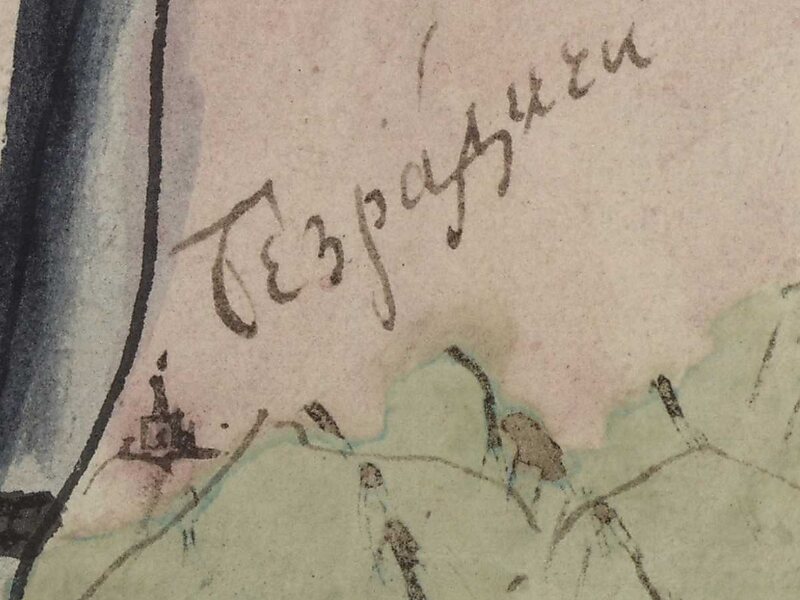 Безрадичи